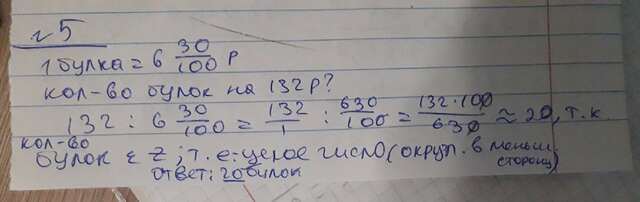 №5
1 булка = 6 30/100 р
кол-во булок на 132 р?
132 : 6 30/100 = 132/1 : 630/100 = 132·100/630 ≈ 20, т.к.
кол-во
булок ε Z; т.е. целое число (округл. в меньш.
сторону)
ответ: 20 булок